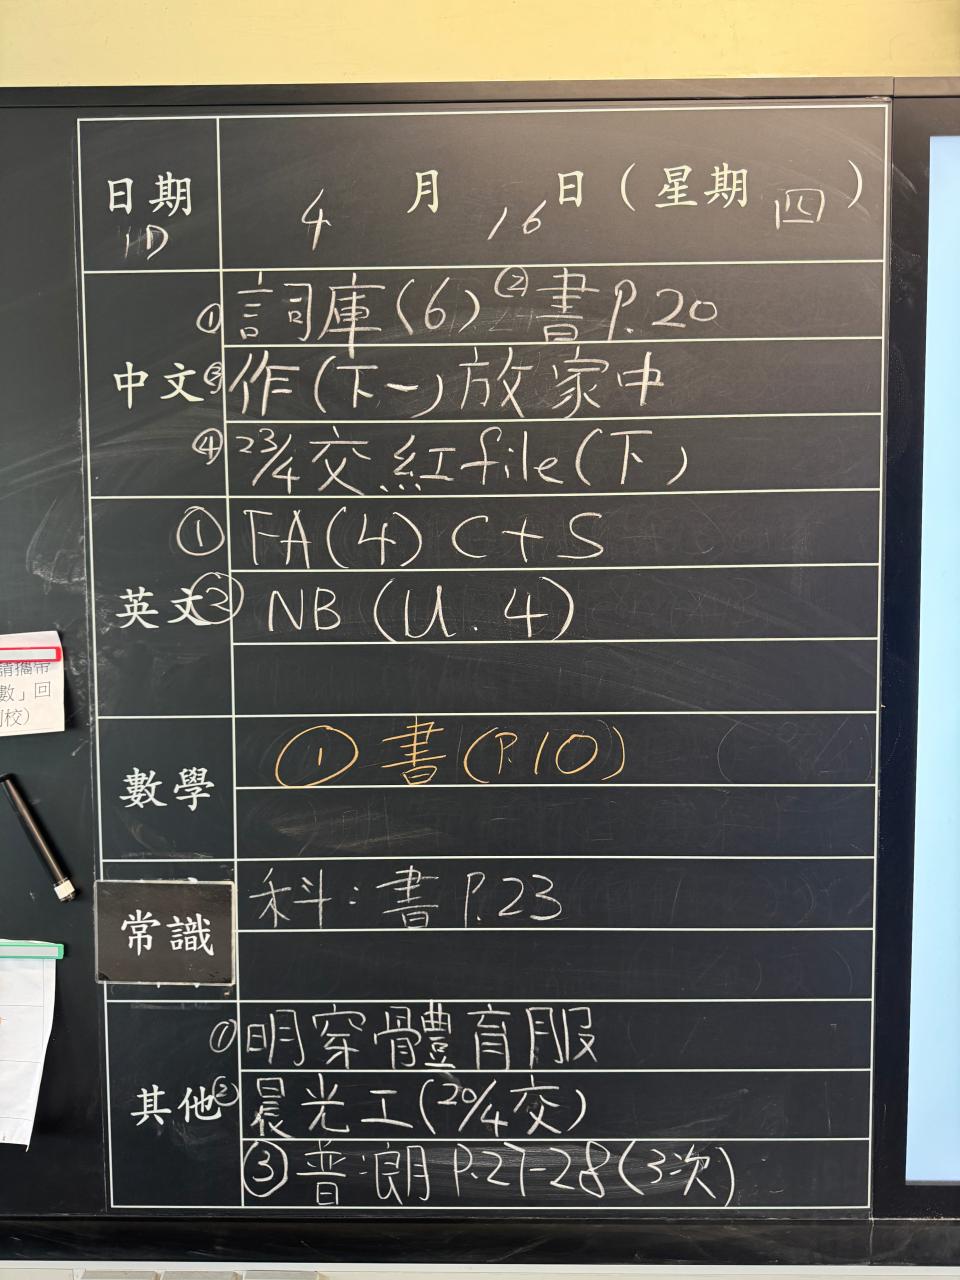 日期 4月16日(星期四)
1D
①詞庫(6) ②書P.20
中文 ③作(下一)放家中
④23/4交紅file(下)
①FA(4) C+S
英文 ②NB (U.4)
①書(P.10)
數學
科:書P.23
常識
①明穿體育服
其他 ②晨光工(20/4交)
③普:朗P.27-28(3次)
請攜帶
數」回
校)